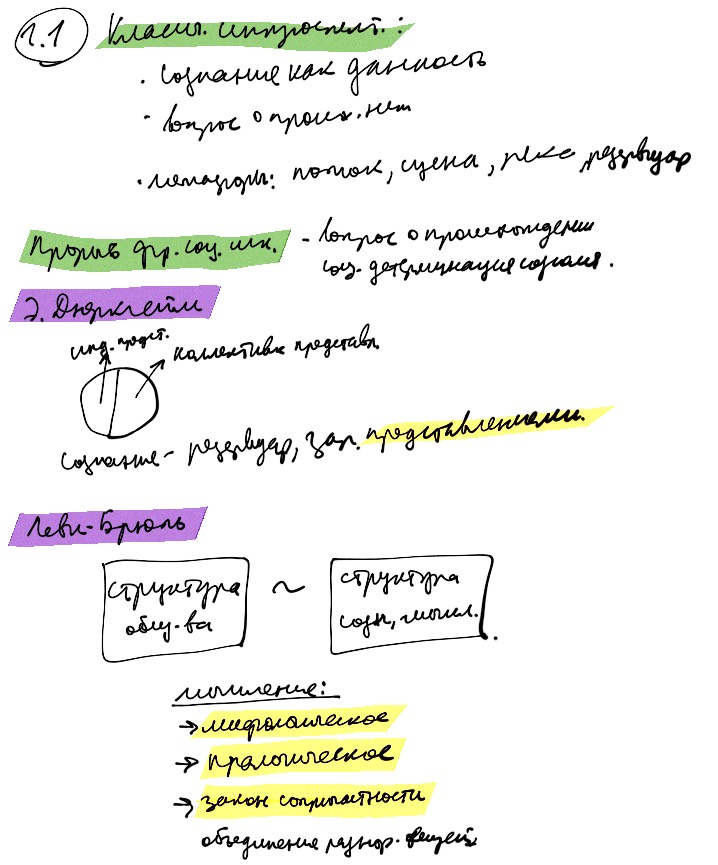 1.1 Классич. интроспект.:
· сознание как данность
· вопрос о происх. нет
· метафоры: поток, сцена, река, резервуар
Прорыв фр. соц. шк. - вопрос о происхождении
соц. детерминация сознания.
Э. Дюркгейм
инд. предст.
коллективн представл.
Сознание - резервуар, зап. представлениями.
Леви-Брюль
структура
общ-ва
~
структура
созн, мышл.
мышление:
→ мифологическое
→ пралогическое
→ закон сопричастности
объединение разнор. вещей